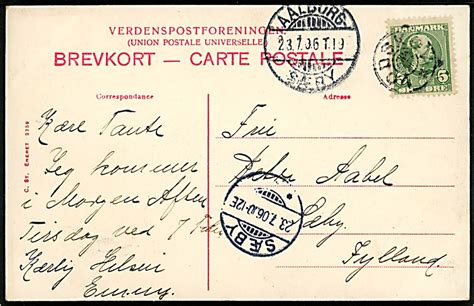 VERDENSPOSTFORENINGEN
(UNION POSTALE UNIVERSELLE)
BREVKORT – CARTE POSTALE
AALBORG
23.7.06 T.19
SÆBY
DANMARK
5 ØRE
Correspondance
Adresse
C. St. Eneret 2759
Kære Tante
Jeg kommer
i Morgen Aften
Tirsdag ved 7
Kærlig Hilsen
Emmy.
Fru
Aabel
Sæby
Jylland.
SÆBY
23.7.06.10-12E